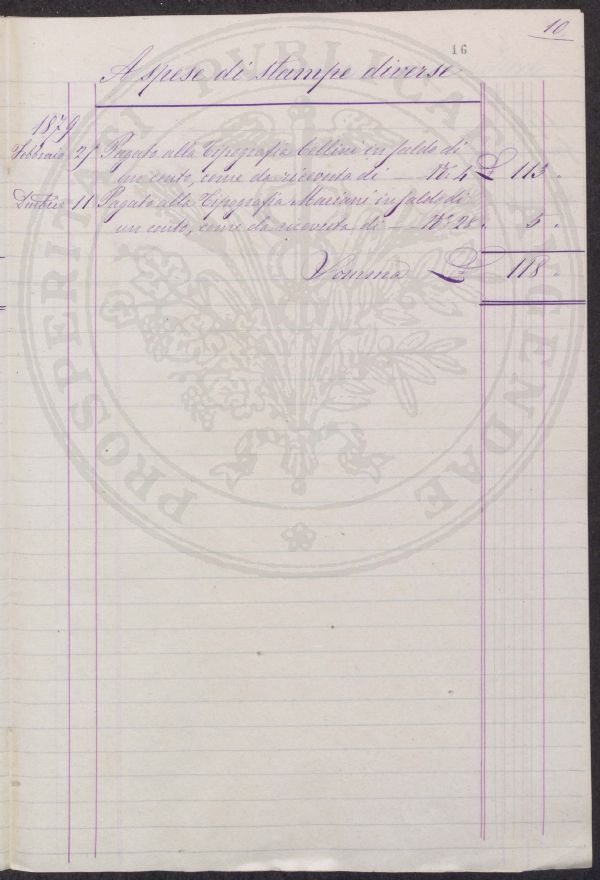 10
16
A spese di stampe diverse
1879
Febbraio Pagato alla Tipografia Cellini in saldo di
un conto, come da ricevuta di — N.º 4 £ 113.
11 Pagato alla Tipografia Mariani in saldo di
un conto, come da ricevuta di — N.º 28. 5.
Somma £ 118.
PROSPERITATI PUBLICAE AUGENDAE